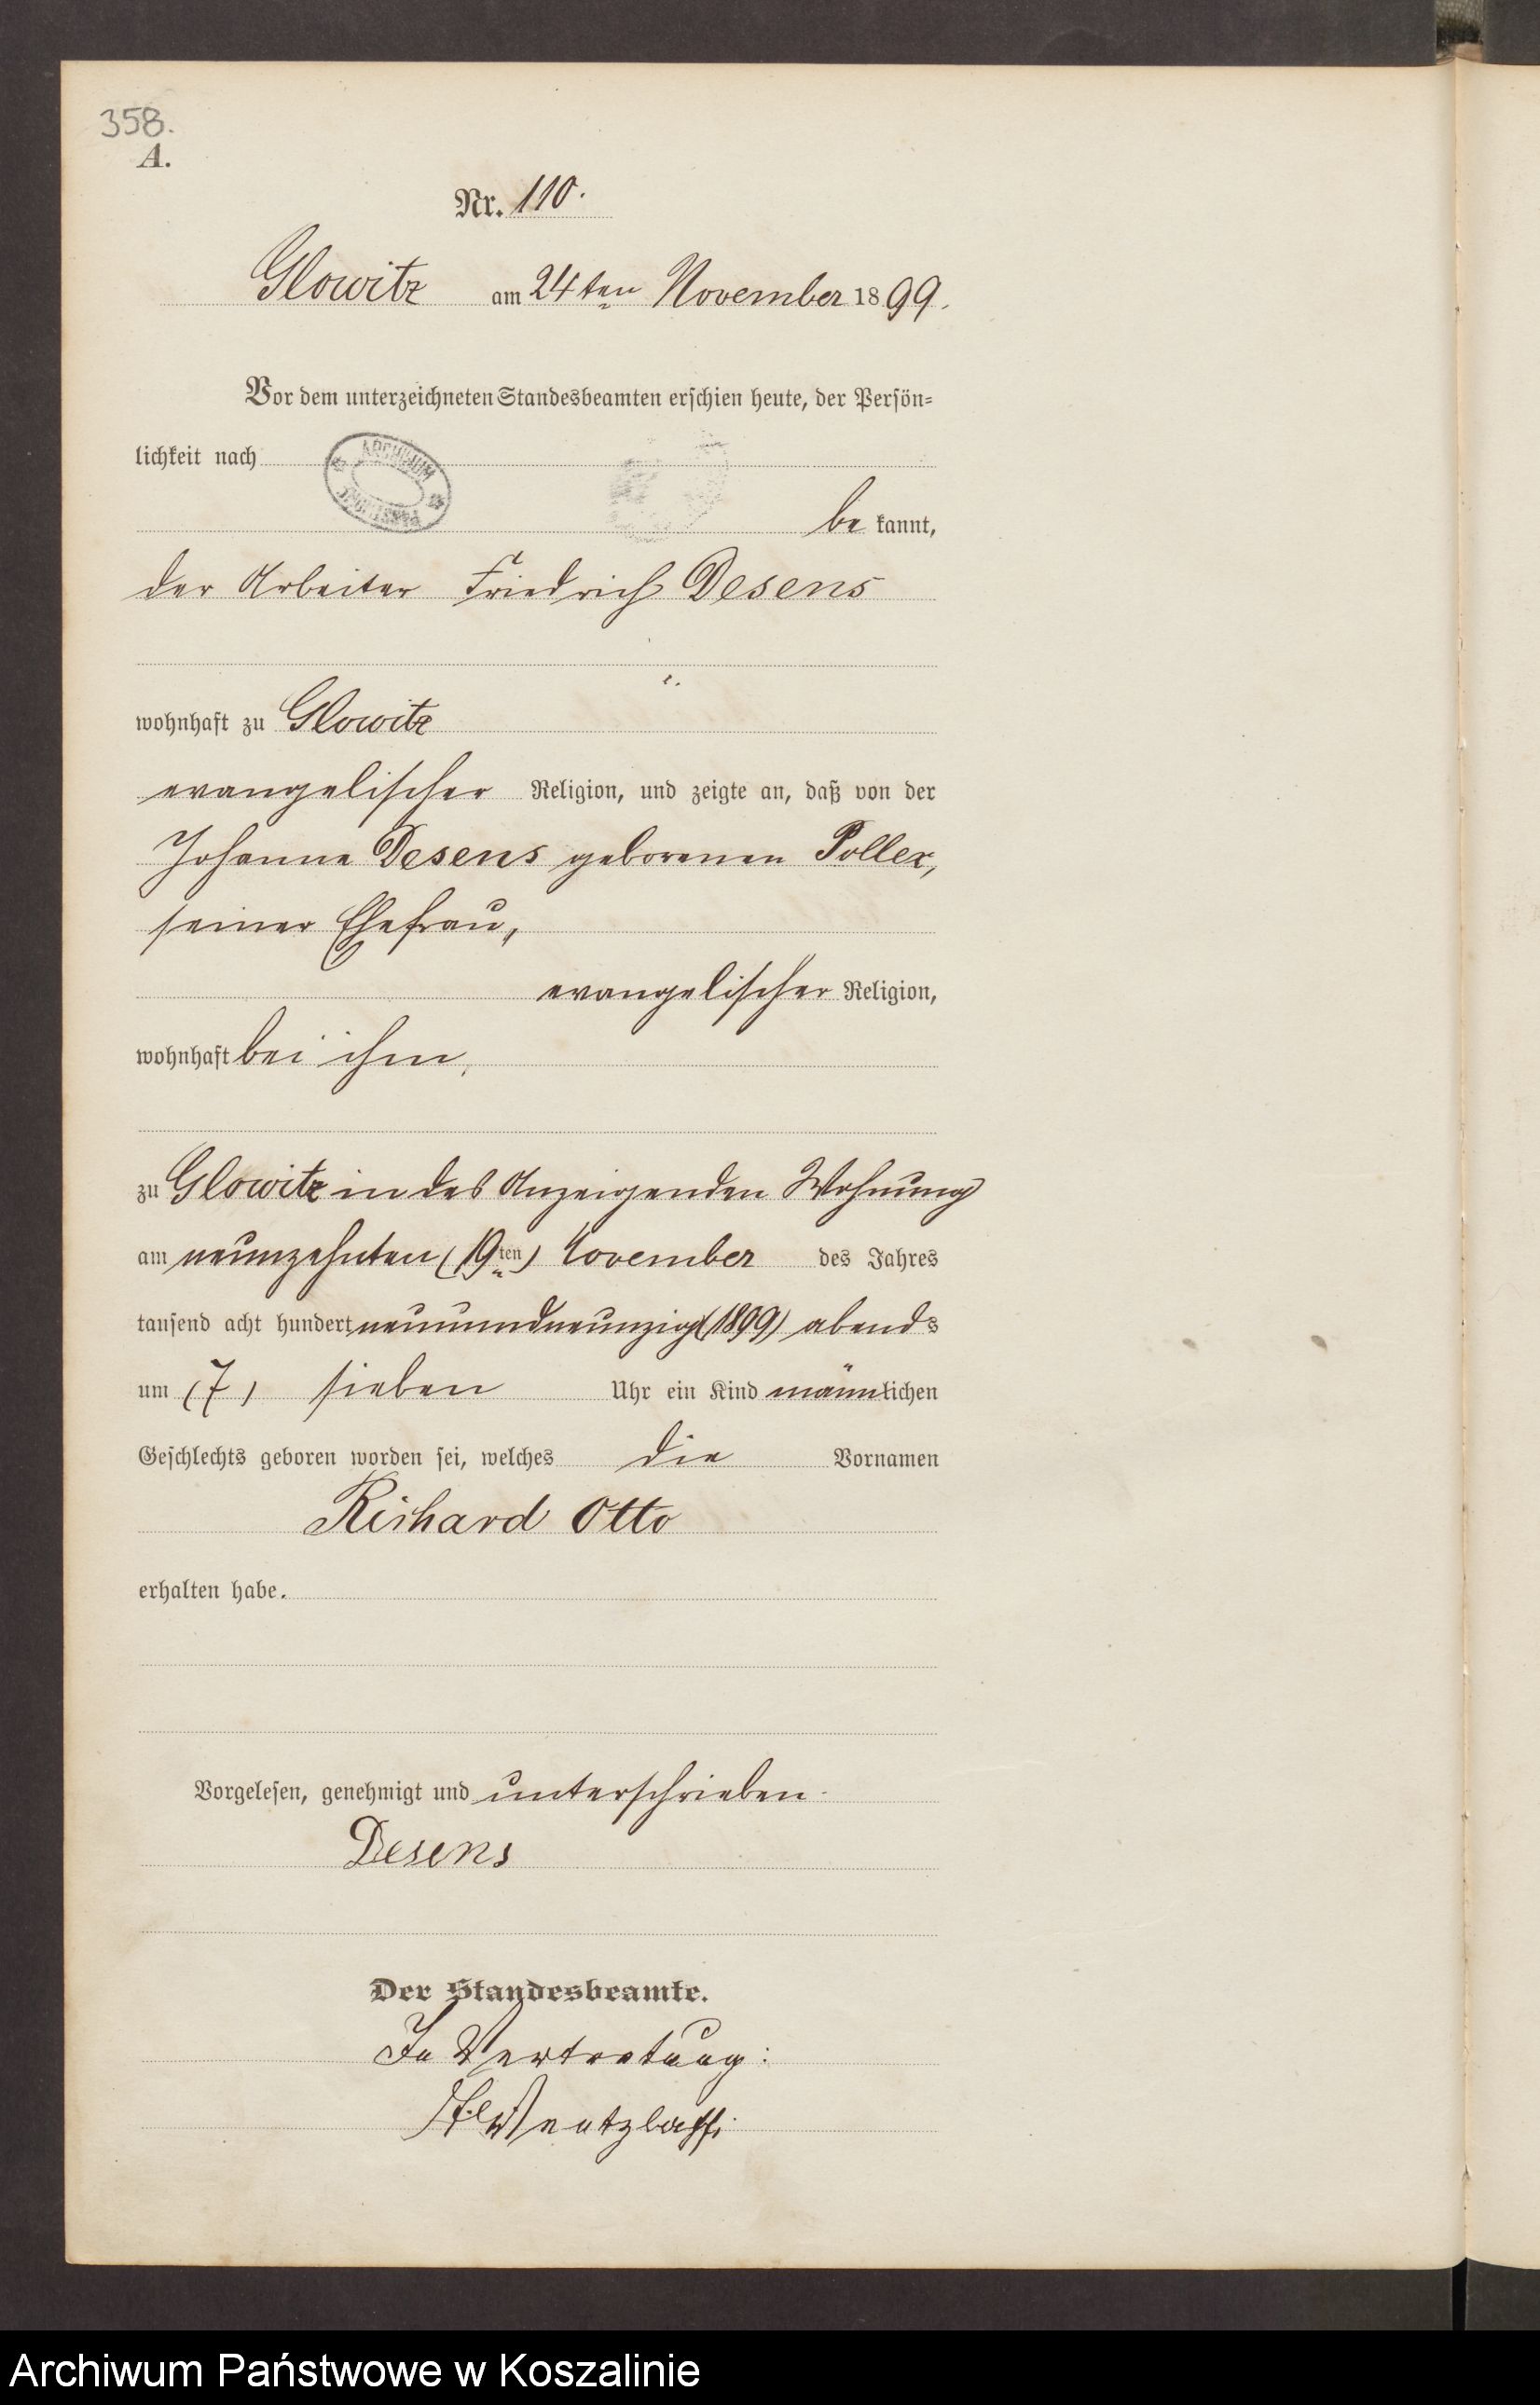 358.
A.
Nr. 110.
Glowitz am 24ten November 1899.
Vor dem unterzeichneten Standesbeamten erschien heute, der Persön-
lichkeit nach
ARCHIWUM
be kannt,
der Arbeiter Friedrich Desens
wohnhaft zu Glowitz
evangelischer Religion, und zeigte an, daß von der
Johanna Desens geborenen Poller,
seiner Ehefrau,
evangelischer Religion,
wohnhaft bei ihm,
zu Glowitz in des Anzeigenden Wohnung
am neunzehnten (19ten) November des Jahres
tausend acht hundert neunundneunzig (1899) abends
um (7) sieben Uhr ein Kind männlichen
Geschlechts geboren worden sei, welches die Vornamen
Richard Otto
erhalten habe.
Vorgelesen, genehmigt und unterschrieben.
Desens
Der Standesbeamte.
In Vertretung:
Archiwum Państwowe w Koszalinie